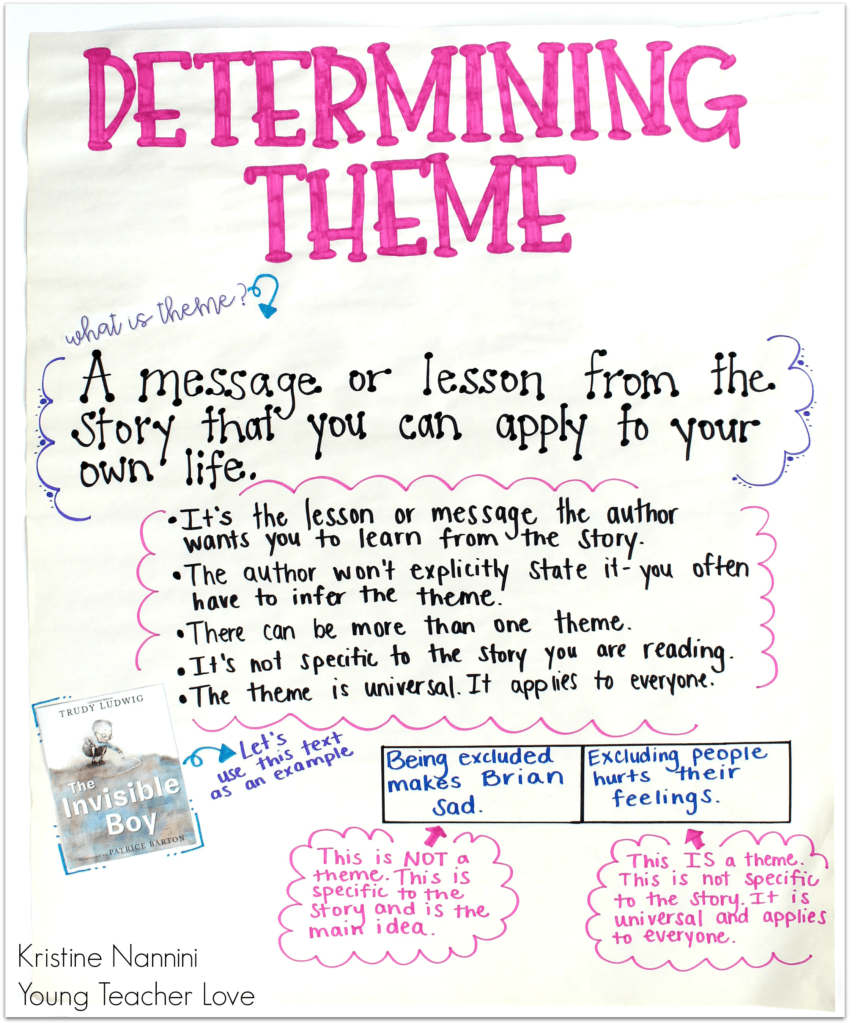 DETERMINING
THEME
what is theme?
A message or lesson from the
story that you can apply to your
own life.
• It's the lesson or message the author
wants you to learn from the story.
• The author won't explicitly state it- you often
have to infer the theme.
• There can be more than one theme.
• It's not specific to the story you are reading.
• The theme is universal. It applies to everyone.
TRUDY LUDWIG
The
Invisible
Boy
PATRICE BARTON
Let's
use this text
as an example
Being excluded
makes Brian
sad.
Excluding people
hurts their
feelings.
This is NOT a
theme. This is
specific to the
story and is the
main idea.
This IS a theme.
This is not specific
to the story. It is
universal and applies
to everyone.
Kristine Nannini
Young Teacher Love